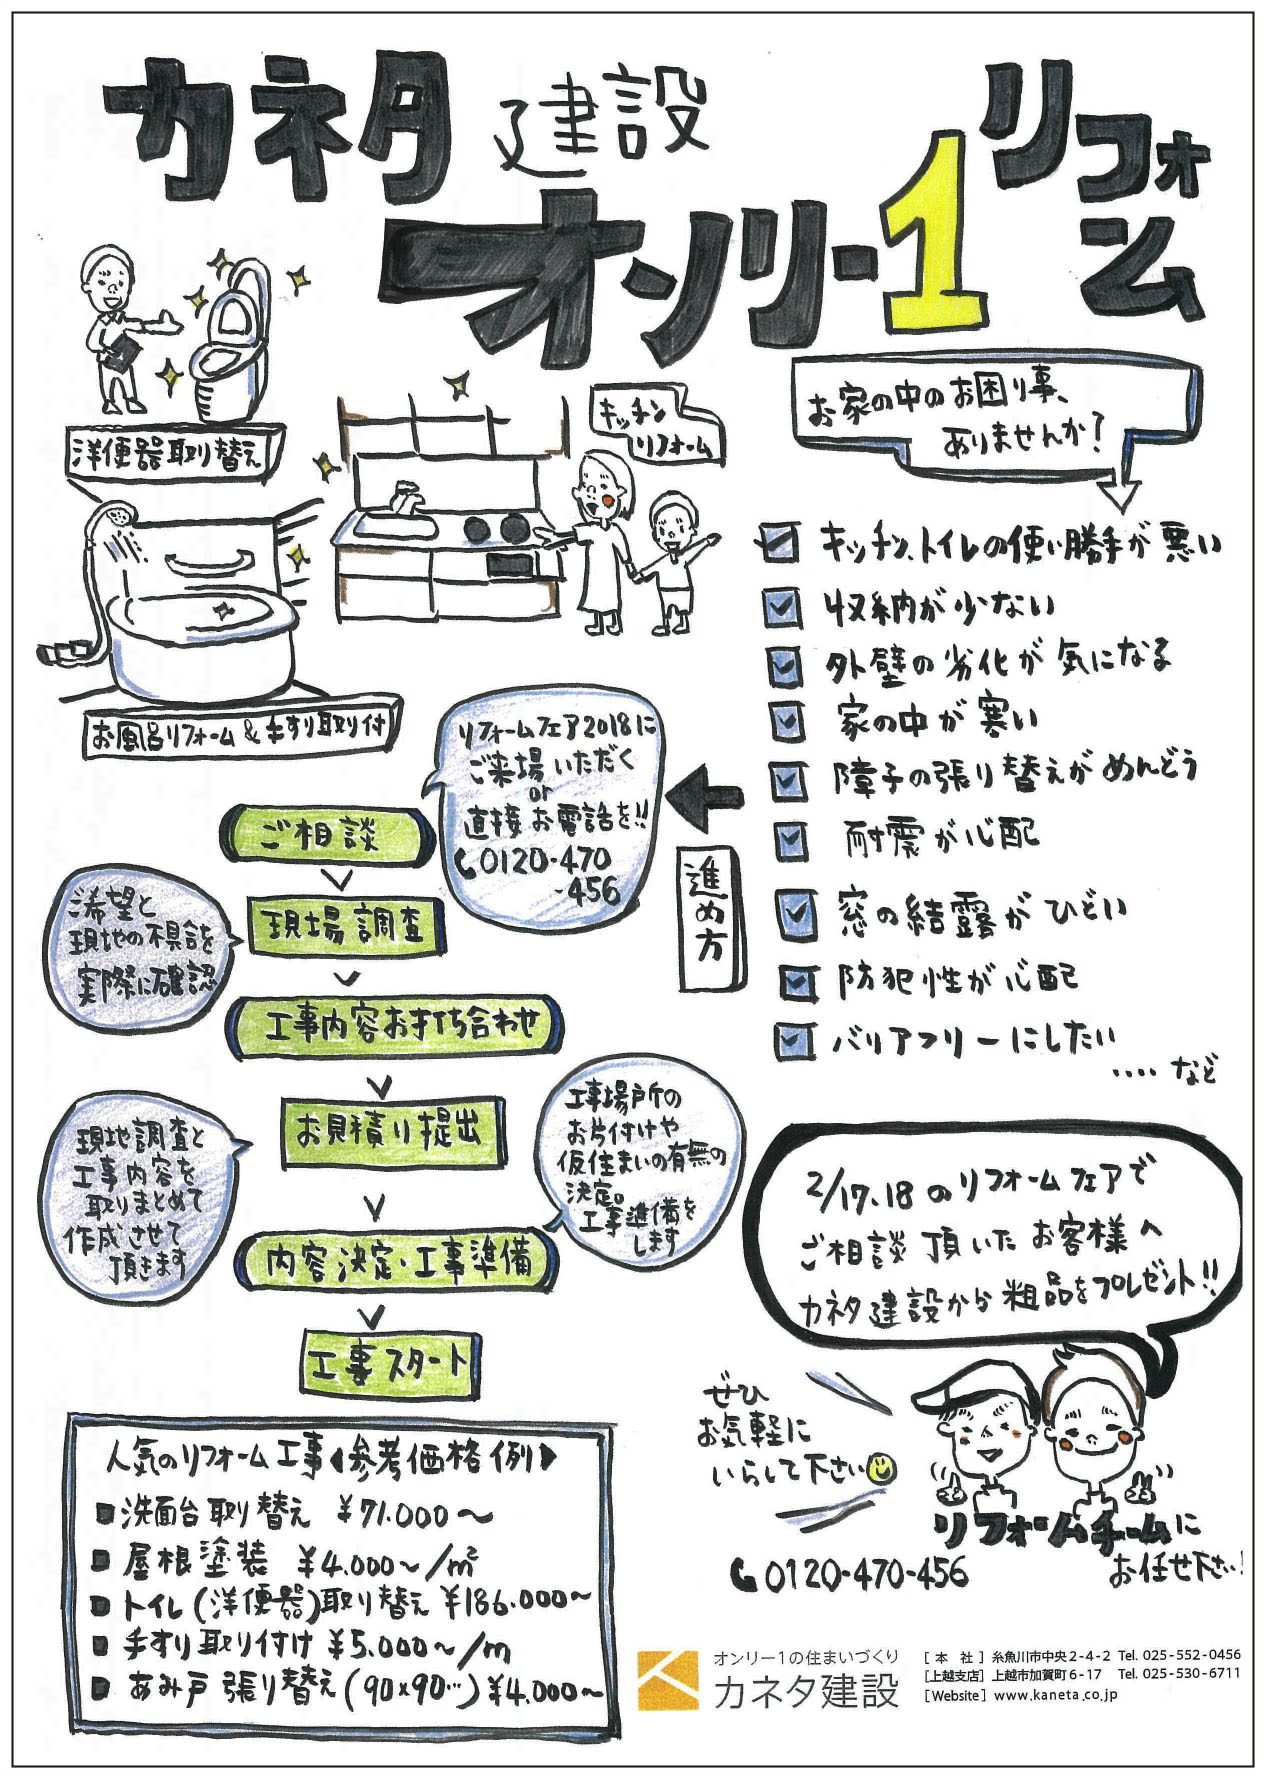 カネタ建設
オンリー1
リフォーム
洋便器取り替え
キッチン
リフォーム
お風呂リフォーム&手すり取り付
お家の中のお困り事、
ありませんか?
キッチン、トイレの使い勝手が悪い
収納が少ない
外壁の劣化が気になる
家の中が寒い
障子の張り替えがめんどう
耐震が心配
窓の結露がひどい
防犯性が心配
バリアフリーにしたい
・・・・など
進め方
リフォームフェア2018に
ご来場いただく
or
直接お電話を!!
0120-470
-456
ご相談
現場調査
ご希望と
現地の不具合を
実際に確認
工事内容お打ち合わせ
お見積り提出
現地調査と
工事内容を
取りまとめて
作成させて
頂きます
内容決定・工事準備
工事場所の
お片付けや
仮住まいの有無の
決定。
工事準備を
します
工事スタート
2/17.18のリフォームフェアで
ご相談頂いたお客様へ
カネタ建設から粗品をプレゼント!!
ぜひ
お気軽に
いらして下さい
リフォームチームに
お任せ下さい!
0120-470-456
人気のリフォーム工事《参考価格例》
■洗面台取り替え ¥71.000~
■屋根塗装 ¥4.000~/m²
■トイレ(洋便器)取り替え ¥186.000~
■手すり取り付け ¥5.000~/m
■あみ戸張り替え(90×90…)¥4.000~
オンリー1の住まいづくり
カネタ建設
[本 社] 糸魚川市中央2-4-2 Tel. 025-552-0456
[上越支店] 上越市加賀町6-17 Tel. 025-530-6711
[Website] www.kaneta.co.jp